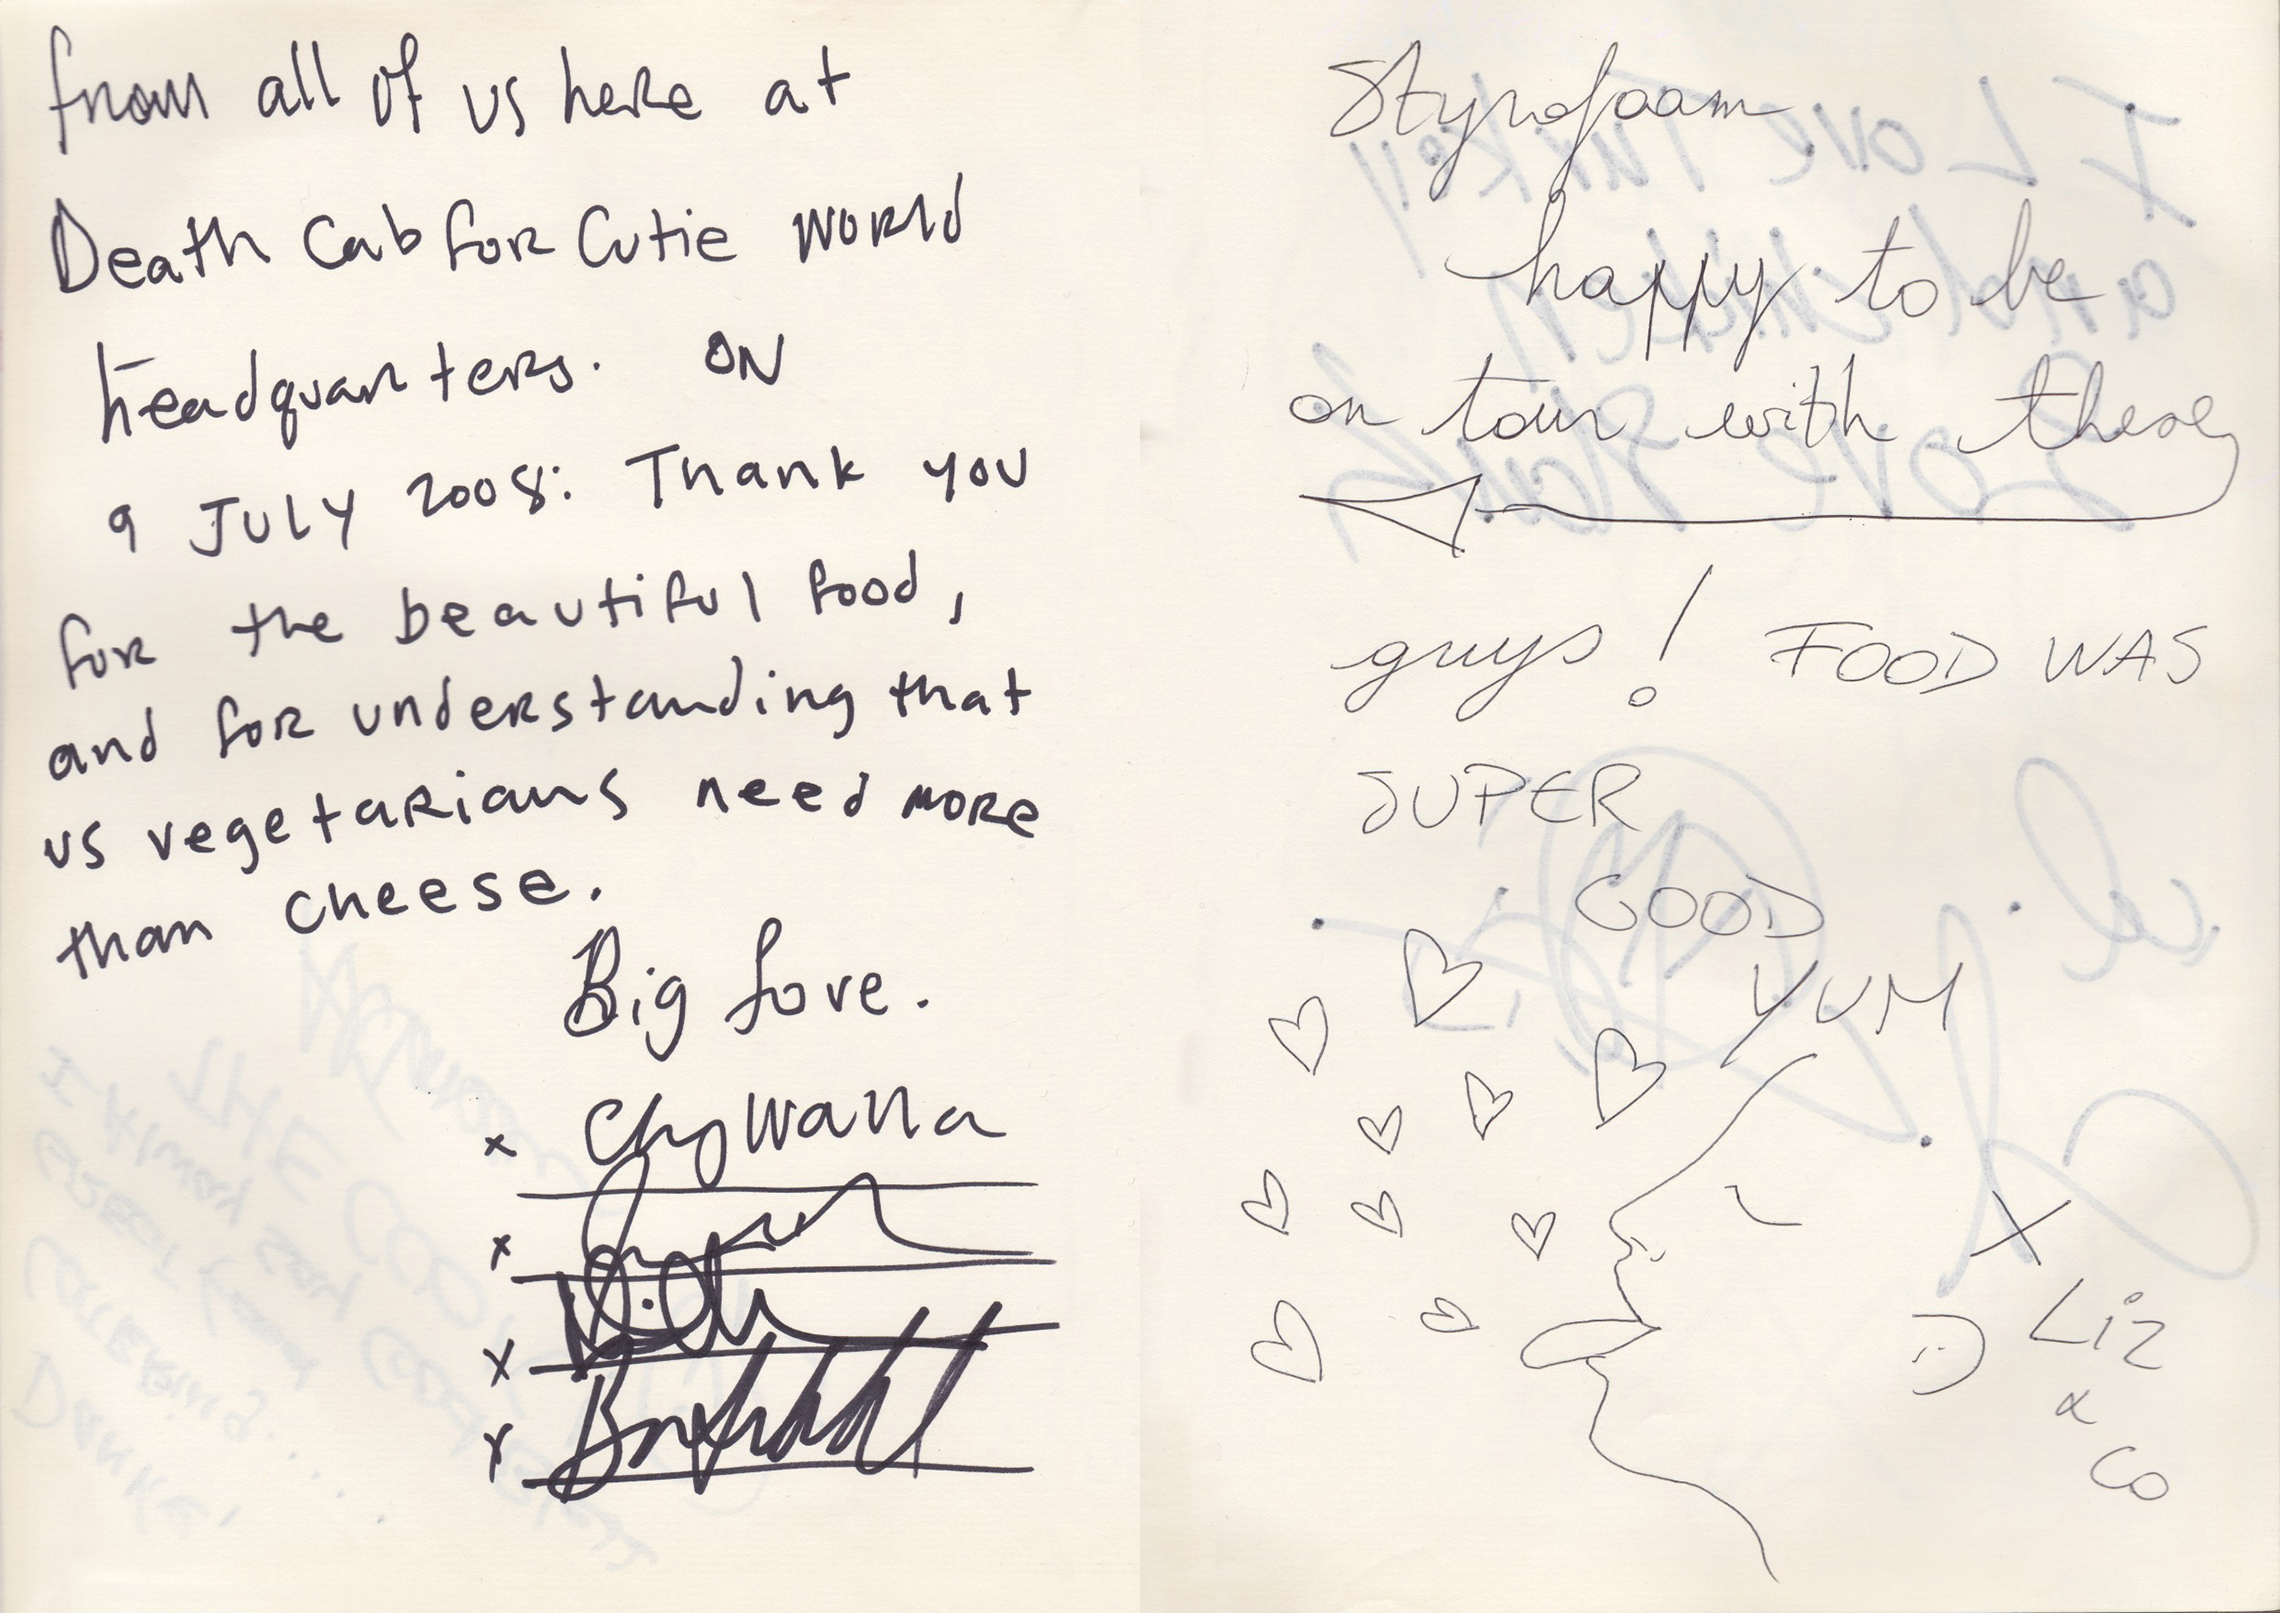 from all of us here at
Death Cab for Cutie World
headquarters. ON
9 JULY 2008: Thank you
for the beautiful food,
and for understanding that
us vegetarians need more
than cheese.
Big love.
x
x
x
x
Styrofoam
happy to be
on tour with these
guys! FOOD WAS
SUPER
GOOD
YUM
X
:) Liz
&
Co